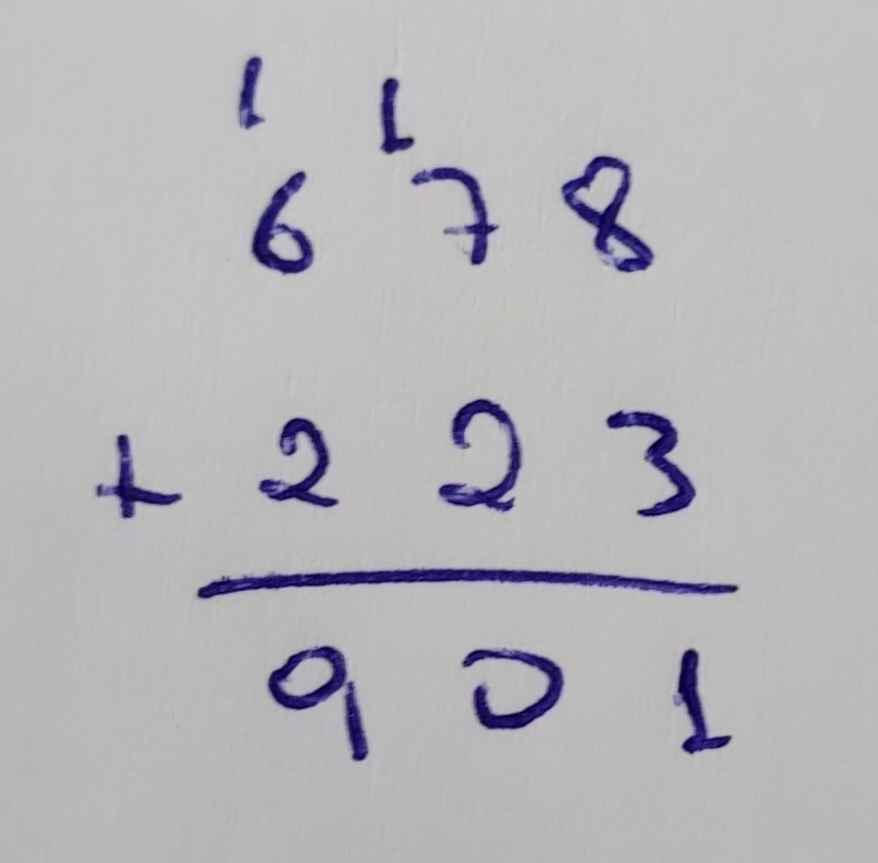 1 1
6 7 8
+ 2 2 3
9 0 1